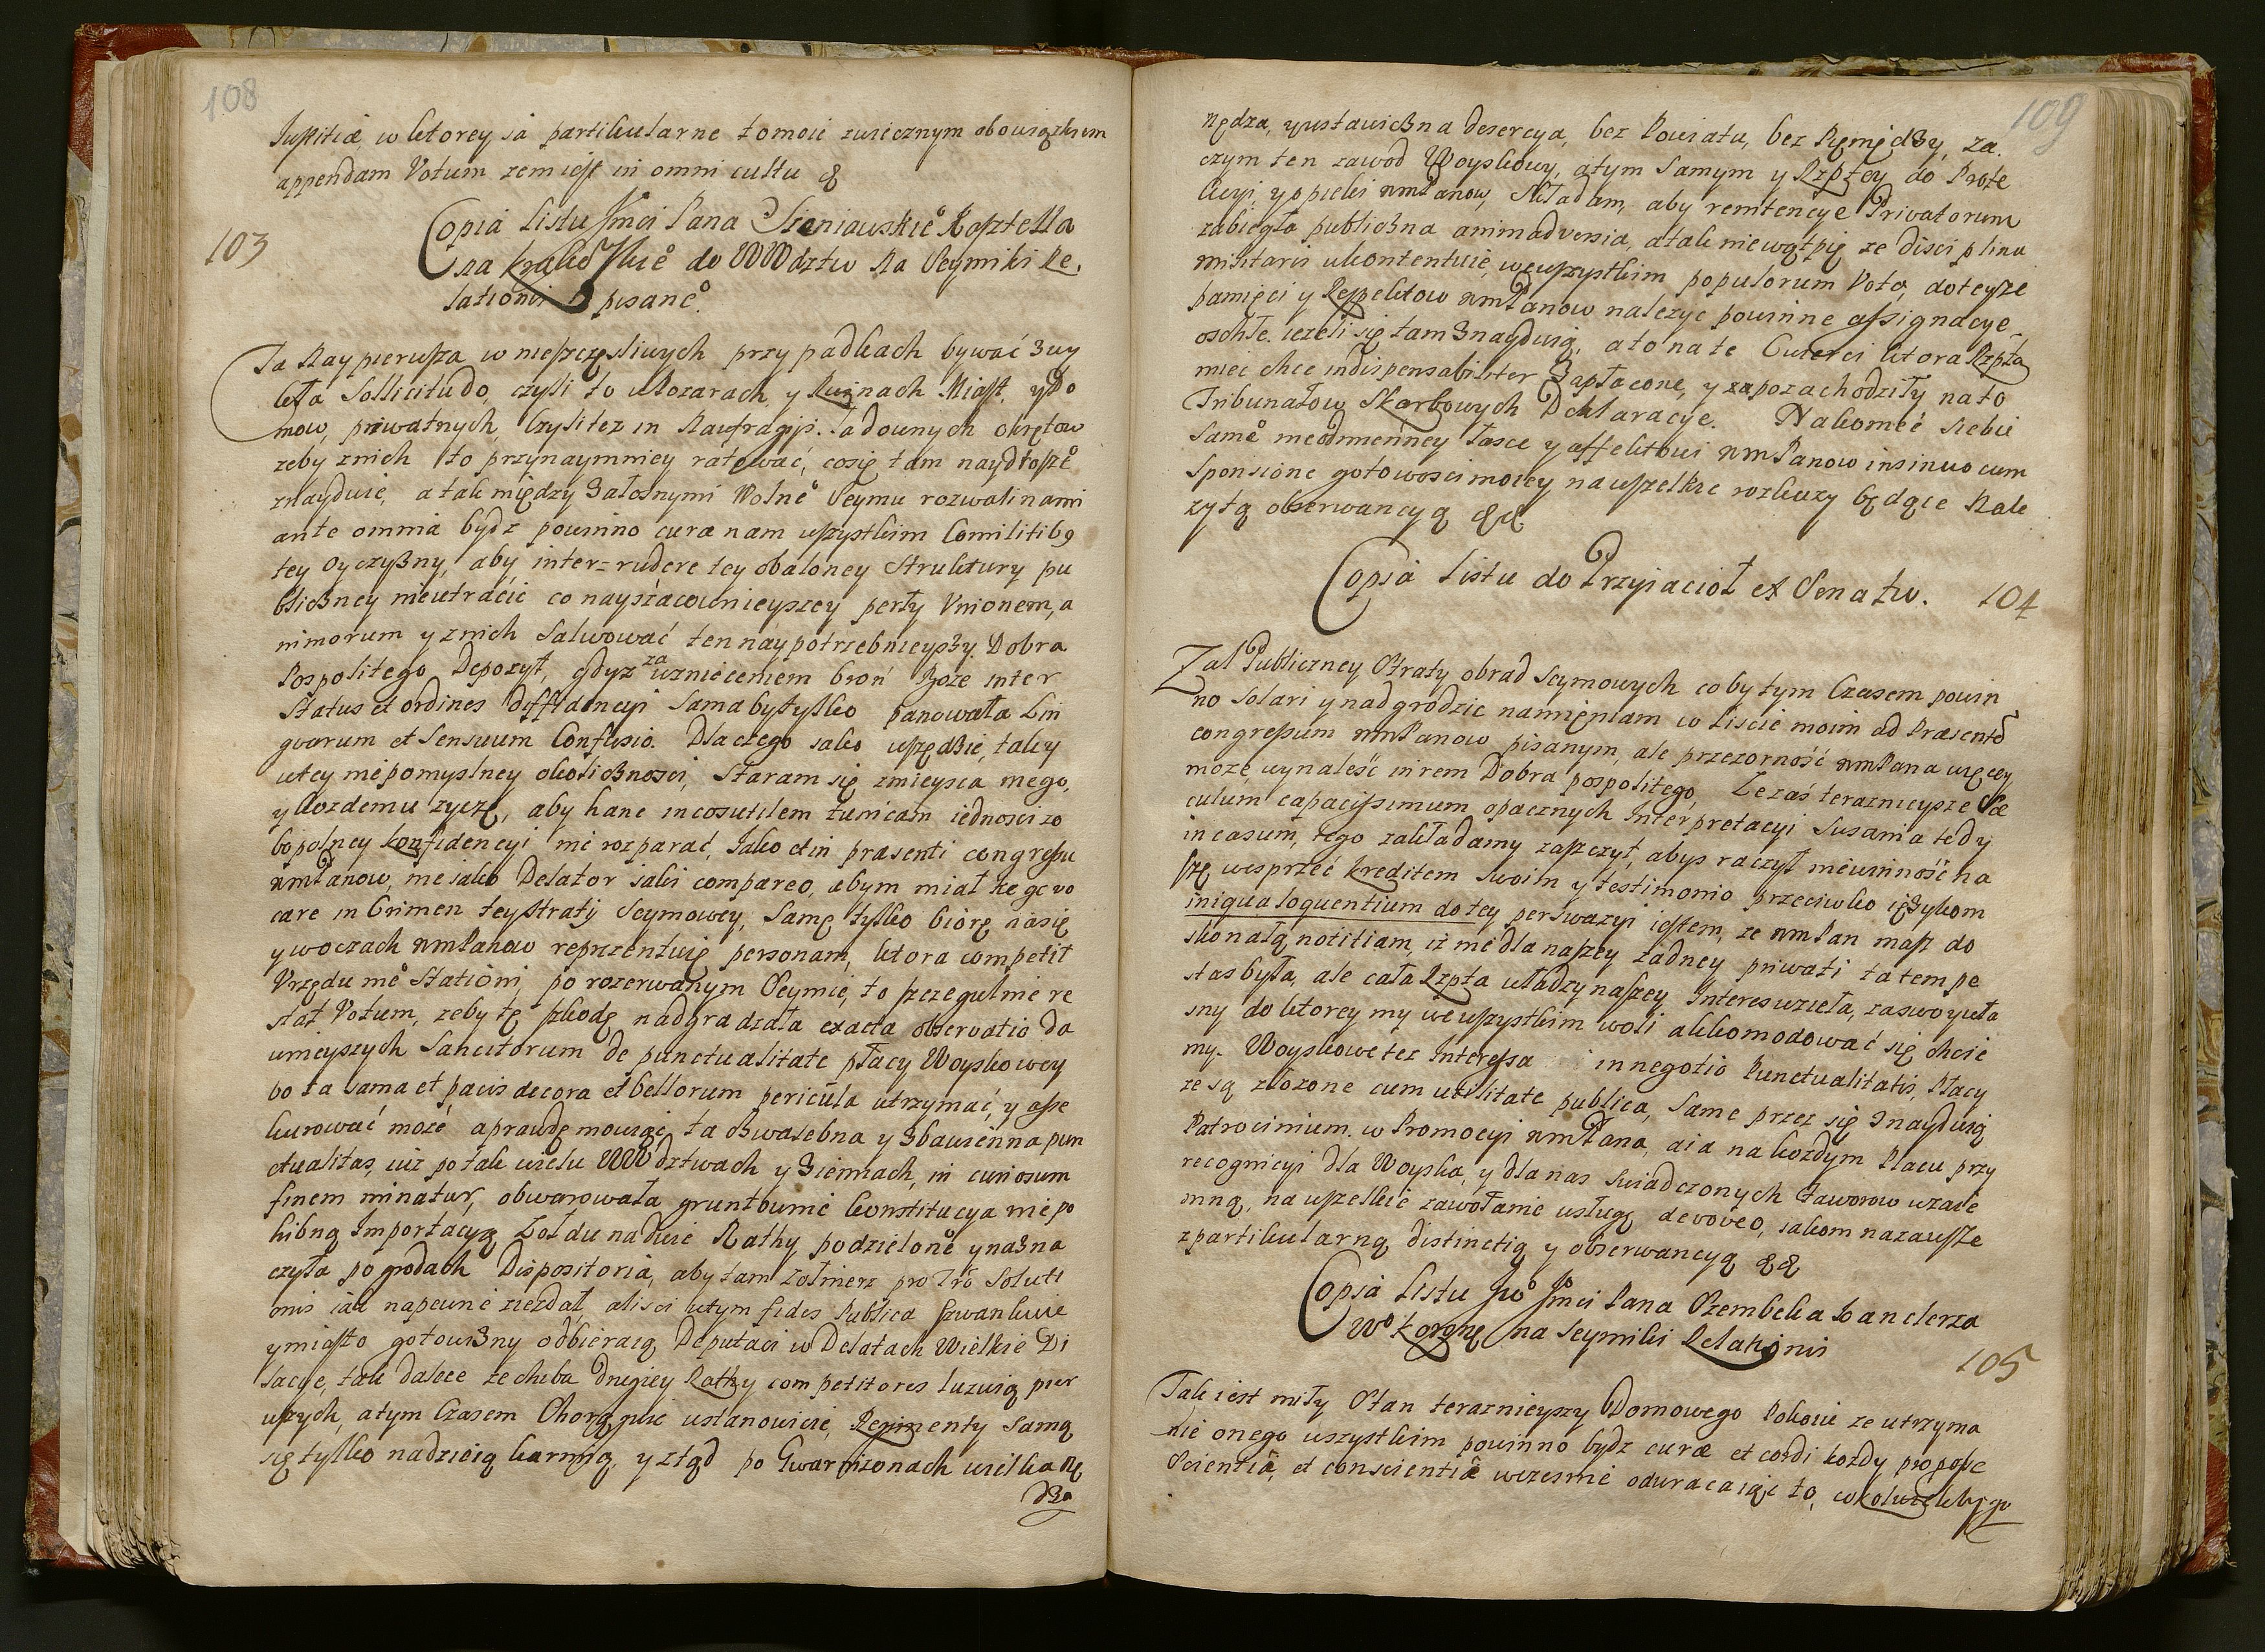 108
Justitiæ, w ktorey ia partikularne tomoie zwiecznym obowiązkiem
appendam Votum zemiest in omni cultu &
103
Copia listu Jmci Pana Sieniawskie° Kasztella
na Krako Skie° do WWdztw Na Seymiki Re,
lationis pisane°.
Ta Naypierwsza w nieszczęsliwych przypadkach bywać zwy
kła Sollicitudo, czyli to wPozarach, y Ruinach Miast, yDo
mow, priwatnych, Czylitez in Naufragijs ładownych okrętow
zeby znich to przynaymniey ratować, cosię tam naydrosze°
znayduie, atak między załosnymi Wolne° Seymu rozwalinami
ante omnia bydz powinno cura nam wszystkim Comilitib9
tey Oyczyzny, aby inter=rudere tey obaloney Struktury pu
bliczney nieutracić co nayszacownieyszey perły Unionem, a
nimorum y znich Salwować ten naypotrzebnieyszy Dobra
Pospolitego Depozyt, gdyz za wznieceniem broń Boze inter
Status et ordines Diffidencyi Samabytylko panowała Lin
gvarum et Sensuum Confusio. Dlaczego iako wszędzie, tak y
wtey niepomyslney okoliczności, Staram się zmieysca mego,
y kozdemu zyczę, aby hanc incosutilem tunicam iednosci zo
bopolney konfidencyi nie rozparać, Jako et in præsenti congressu
WmPanow, nie iako Delator iaki compareo, abym miał kogo vo
care in Crimen tey Straty Seymowey, Samę tylko biorę nasię
y woczach WmPanow reprezentuię personam, ktora competit
Vrzędu me° Stationi, po rozerwanym Seymie, to szczegulnie re
stat Votum, zeby tę szkodę nadgradzała exacta observatio da
wnieyszych Sancitorum de punctualitate płacy Woyskowey
bo ta sama et pacis decora et bellorum pericula utrzymać, y asse
kurować może aprawdę mowiąc, ta chwalebna y zbawienna pun
ctualitas, iuz po tak wielu WWdztwach y Ziemiach, in
finem minatur, obwarowała gruntownie Konstitucya niepo
hibną Importacyą Zołdu nadwie Rathy podzielone° y nazna
czyła po grodach Dispositoria, aby tam Zołnierz pro Soluti
onis iak napewne ziezdał, aliści wtym fides Publica szwankuie
y miasto gotowizny odbieraią Deputaci w Delatach Wielkie Di
lacye, tak dalece że chyba Drugiey Rathy competitores luzuią pier
wszych, atym Czasem Chorągwie ustanowicie, Regimenty Samą
się tylko nadzieią karmią, y ztąd po Gwarnizonach wielka nę
dza
109
nędza, y ustawiczna desercya, bez Powiatu, bez Pieniędzy, za
czym ten zawod Woyskowy, atym Samym y Rzptey do Prote
kcyi, y opieki WmPanow, Składam, aby remitencye Privatorum
zabiegła publiczna animadversia, atak niewątpię ze disciplina
militaris ukontentuie, wewszystkim populorum Vota, doteysze
pamięci y Respektow WmPanow należyc powinne assignacye
oschłe. iezeli się tam znayduią, ato na te Cuterci ktora Rzpta
mieć chce indispensabiliter Zapłacone, y zapozachodziły nato
Tribunałow Skarbowych Deklaracye. Nakoniec siebie
Same° nieodmienney łasce y affektowi WmPanow insinuo cum
Sponsione gotowosci moiey nawszelkie rozkazy będąc Nale
zytą obserwancyą &&
Copia listu do Przyiacioł ex Senatu. 104
Zal Publiczney Straty obrad Seymowych coby tym Czasem powin
no Solari y nadgrodzic namięniam w Liscie moim ad Præsente
congressum WmPanow pisanym, ale przezorność WmPana więcey
moze wynaleść in rem Dobra pospolitego, Ze zas teraznieysze Sæ
culum capacissimum opacznych Interpretacyi Susannia tedy
in casum, tego zakładamy zaszczyt, abys raczył niewinność na
szę wesprzeć kreditem Swoim y testimonio przeciwko ięzykom
iniqua loquentium dotey perswazyi iestem, ze WmPan masz do
skonałą notitiam, iz nie dla naszey żadney priwati ta tempe
stas była, ale cała Rzpta władzy naszey Interes wzieła, za swoy uła
sny do ktorey my wewszystkim woli akkomodować się chcie
my. Woyskowe tez Interessa in negotio Punctualitatis, Płacy
ze są złozone cum utilitate publica, Same przez się znayduią
Patrocinium w Promocyi WmPana, aia na kozdym Placu przy
recognicyi dla Woyska, y dla nas Swiadczonych Faworow wzaie
mną, na wszelkie zawołanie usługę devoveo, iakom nazawsze
zpartikularną distinctią y obserwancyą &&
Copia listu Jmci Pana Szembeka Kanclerza
W° Koronne° na Seymiki Relationis
105
Taki iest miły Stan teraznieyszy Domowego Pokoiu ze utrzyma
nie onego wszystkim powinno bydz curæ et cordi kozdy pro posse
Scientiæ, et conscientiæ wczesnie odwracaiąc to, cokolwiekby go